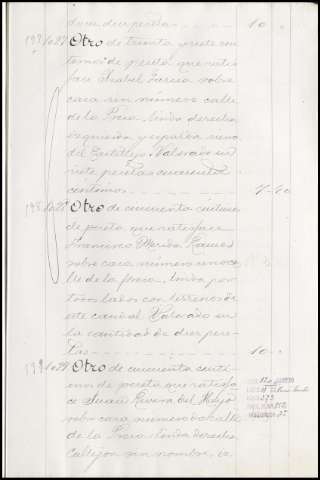 en diez pesetas 10 "
Otro de treinta y siete cen
timos de peseta que satis
face Isabel Garcia sobre
casa sin número calle
de la Presa, linda derecha
izquierda y espalda
del Castillejo. Valorado en
siete pesetas cuarenta
céntimos 7-40
Otro de cincuenta céntimos
de peseta que satisface
Francisco Merida Ramos
sobre casa número once ca
lle de la Presa, linda por
todos lados con terrenos de
este caudal. Valorado en
la cantidad de diez pese-
tas 10 "
Otro de cincuenta cénti-
mos de peseta que satisfa
ce Juan Rivera del Hoyo
sobre casa número calle
de la Presa linda derecha
Callejon sin nombre, iz